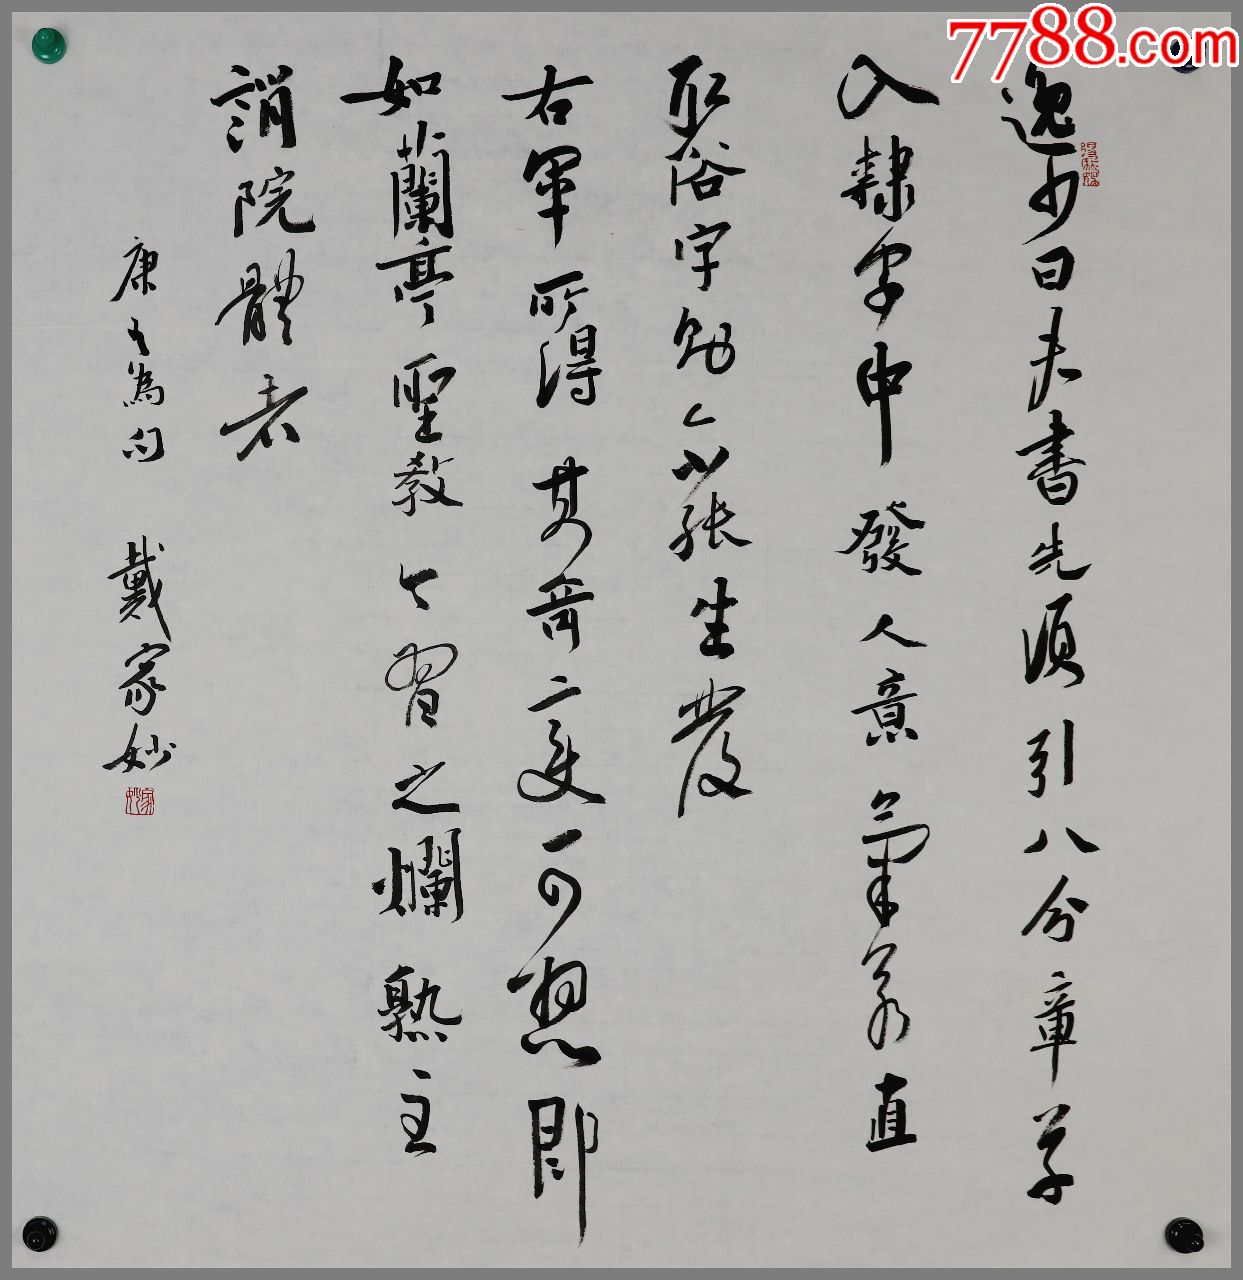 7788.com
逸少曰夫書先須引八分章草
入隸字中發人意氣若直
取俗字則不能生發
右軍所得其奇變可想即
如蘭亭聖教今習之爛熟至
誚院體者
康有為句 戴家妙
家妙